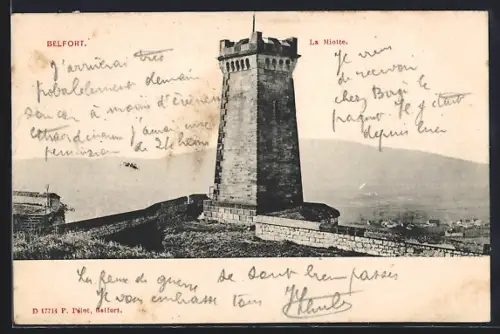 BELFORT.
La Miotte.
J'arriverai très
probablement demain
soir à moins d'événement
extraordinaire j'aurai une
permission de 24 heures
Je viens
de recevoir
chez le
paquet Je
depuis hier
de guerre se sont bien passées
Je vous embrasse tous
D 17714 P. Pélot, Belfort.